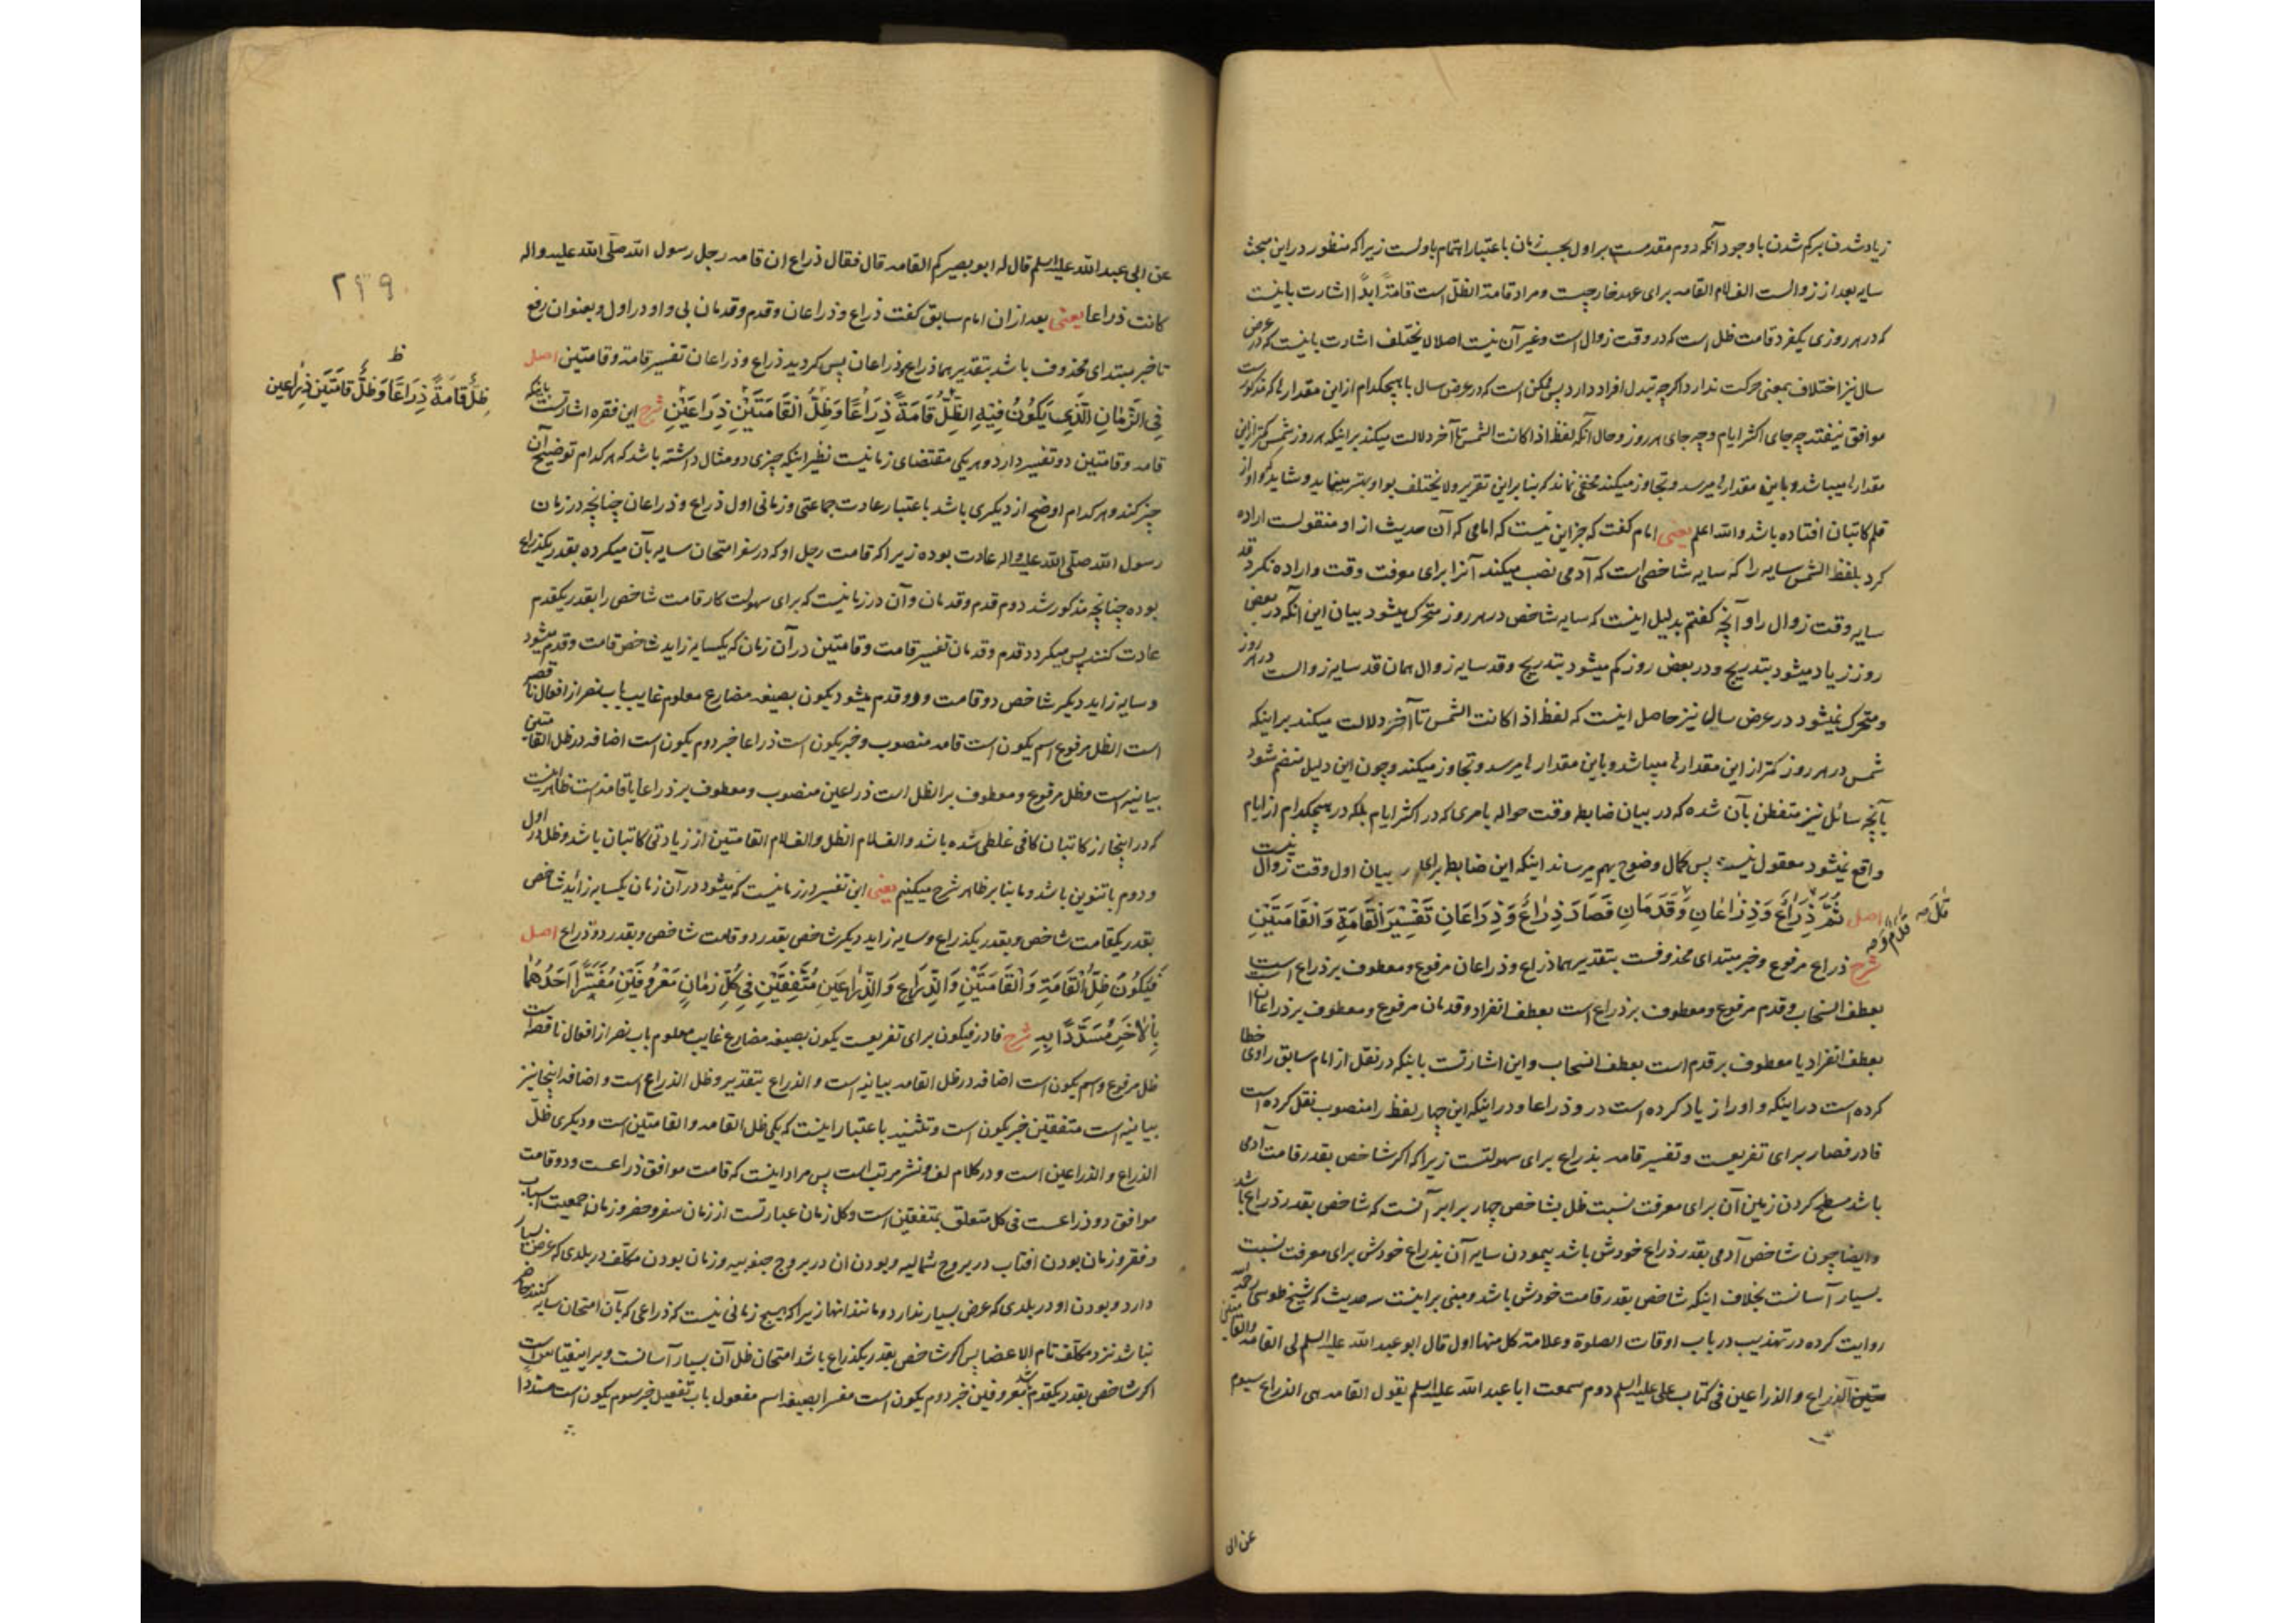 زیاد شدن بر کم شدن با وجود آنکه دوم مقدمست بر اول بحسب زمان باعتبار اهتمام باولست زیرا که منظور در این مبحث
سایه بعد از زوالست الف لام القامه برای عهد خارجیست و مراد قامة الظل است قامةً ابدًا اشارت باینست
که در هر روزی یکفرد قامت ظل است که در وقت زوال است و غیر آن نیست اصلا لا یختلف اشارت باینست که در عرض
سال نیز اختلاف بمعنی حرکت ندارد اگر چه تبدل افراد دارد پس ممکن است که در عرض سال با هیچکدام از این مقدارها که مذکورست
موافق نیفتد چه جای اکثر ایام و چه جای هر روز و حال آنکه لفظ اذا کانت الشمس تا آخر دلالت میکند بر اینکه هر روز شمس کمتر از این
مقدارها میباشد و باین مقدارها میرسد و تجاوز میکند مخفی نماند که بنا بر این تقریر ولا یختلف بواو بهتر مینماید و شاید که واو از
قلم کاتبان افتاده باشد والله اعلم یعنی امام گفت که جز این نیست که امامی که آن حدیث از او منقولست اراده
کرد بلفظ الشمس سایه را که سایه شاخصی است که آدمی نصب میکند آنرا برای معرفت وقت و اراده نکرد قد
سایه وقت زوال را و آنچه گفتم بدلیل اینست که سایه شاخص در هر روز متحرک میشود بیان این آنکه در بعض
روز زیاد میشود بتدریج و در بعض روز کم میشود بتدریج و قد سایه زوال همان قد سایه زوالست در هر روز
و متحرک نمیشود در عرض سال نیز حاصل اینست که لفظ اذا کانت الشمس تا آخر دلالت میکند بر اینکه
شمس در هر روز کمتر از این مقدارها میباشد و باین مقدارها میرسد و تجاوز میکند و چون این دلیل منضم شود
بآنچه سائل نیز متفطن بآن شده که در بیان ضابطه وقت حواله بامری که در اکثر ایام بلکه در هیچکدام از ایام
واقع نمیشود معقول نیست پس کمال وضوح بهم میرساند اینکه این ضابطه برای بیان اول وقت زوال نیست
اصل ثُمَّ ذِرَاعٌ وَذِرَاعَانِ وَقَدَمَانِ فَصَارَ ذِرَاعٌ وَذِرَاعَانِ تَفْسِيرَ الْقَامَةِ وَالْقَامَتَيْنِ
شرح ذراع مرفوع و خبر مبتدای محذوفست بتقدیر هما ذراع و ذراعان مرفوع و معطوف بر ذراع است
بعطف انسحاب و قدم مرفوع و معطوف بر ذراع است بعطف انفراد و قدمان مرفوع و معطوف بر ذراعان
بعطف انفراد یا معطوف بر قدم است بعطف انسحاب و این اشارتست باینکه در نقل از امام سابق راوی خطا
کرده است در اینکه واو را زیاد کرده است در و ذراعا و در اینکه این چهار لفظ را منصوب نقل کرده است
فا در فصار برای تفریعست و تفسیر قامه بذراع برای سهولتست زیرا که اگر شاخص بقدر قامت آدمی
باشد مسطح کردن زمین آن برای معرفت نسبت ظل بشاخص چهار برابر آنست که شاخص بقدر ذراع باشد
و ایضا چون شاخص آدمی بقدر ذراع خودش باشد پیمودن سایه آن بذراع خودش برای معرفت نسبت
بسیار آسانست بخلاف اینکه شاخص بقدر قامت خودش باشد و مبنی بر اینست سه حدیث که شیخ طوسی رحمه
روایت کرده در تهذیب در باب اوقات الصلوة وعلامة کل منها اول قال ابو عبد الله علیه السلم لی القامه والقامتین
الذراع والذراعین فی کتاب علی علیه السلم دوم سمعت ابا عبد الله علیه السلم یقول القامه هی الذراع سیوم
عن ابی
عن ابی عبد الله علیه السلم قال له ابو بصیر کم القامه قال فقال ذراع ان قامه رجل رسول الله صلّی الله علیه واله
کانت ذراعا یعنی بعد از ان امام سابق گفت ذراع و ذراعان و قدم و قدمان بی واو در اول و بعنوان رفع
تا خبر مبتدای محذوف باشد بتقدیر هما ذراع و ذراعان پس گردید ذراع و ذراعان تفسیر قامة و قامتین اصل
فِي الزَّمَانِ الَّذِي يَكُونُ فِيهِ الظِّلُّ قَامَةً ذِرَاعًا وَظِلُّ الْقَامَتَيْنِ ذِرَاعَيْنِ شرح این فقره اشارتست باینکه
قامه و قامتین دو تفسیر دارد و هر یکی مقتضای زمانیست نظیر اینکه چیزی دو مثال داشته باشد که هر کدام توضیح آن
چیز کند و هر کدام اوضح از دیگری باشد باعتبار عادت جماعتی و زمانی اول ذراع و ذراعان چنانچه در زمان
رسول الله صلّی الله علیه واله عادت بوده زیرا که قامت رجل او که در سفر امتحان سایه بآن میکرده بقدر یکذراع
بوده چنانچه مذکور شد دوم قدم و قدمان و آن در زمانیست که برای سهولت کار قامت شاخص را بقدر یکقدم
عادت کنند پس میگردد قدم و قدمان تفسیر قامت و قامتین در آن زمان که یکسایه زاید شاخص قامت و قدم میشود
و سایه زاید دیگر شاخص دو قامت و دو قدم میشود یکون بصیغه مضارع معلوم غایب باب نصر از افعال ناقصه
است الظل مرفوع اسم یکون است قامه منصوب و خبر یکون است ذراعا خبر دوم یکون است اضافه در ظل القامتین
بیانیه است و ظل مرفوع و معطوف بر الظل است ذراعین منصوب و معطوف بر ذراعا یا قامة است ظاهر اینست
که در اینجا از کاتبان کافی غلطی شده باشد و الف لام الظل و الف لام القامتین از زیادتی کاتبان باشد و ظل در اول
و دوم با تنوین باشد و ما بنا بر ظاهر شرح میکنیم یعنی این تفسیر در زمانیست که میشود در آن زمان یکسایه زائد شاخص
بقدر یکقامت شاخص و بقدر یکذراع و سایه زاید دیگر شاخص بقدر دو قامت شاخص و بقدر دو ذراع اصل
فَيَكُونُ ظِلُّ الْقَامَةِ وَالْقَامَتَيْنِ وَالذِّرَاعِ وَالذِّرَاعَيْنِ مُتَّفِقَيْنِ فِي كُلِّ زَمَانٍ مَعْرُوفَيْنِ مُفَسَّرًا أَحَدُهُمَا
بِالْآخَرِ مُسَدَّدًا بِهِ شرح فا در فیکون برای تفریعست یکون بصیغه مضارع غایب معلوم باب نصر از افعال ناقصه است
ظل مرفوع و اسم یکون است اضافه در ظل القامه بیانیه است و الذراع بتقدیر و ظل الذراع است و اضافه اینجا نیز
بیانیه است متفقین خبر یکون است و تثنیه باعتبار اینست که یکی ظل القامه والقامتین است و دیگری ظل
الذراع والذراعین است و در کلام لف و نشر مرتب است پس مراد اینست که قامت موافق ذراعست و دو قامت
موافق دو ذراعست فی کل متعلق بمتفقین است و کل زمان عبارتست از زمان سفر و حضر و زمان جمعیت اسباب
و فقر و زمان بودن افتاب در بروج شمالیه و بودن ان در بروج جنوبیه و زمان بودن مکلّف در بلدی که عرض بسیار
دارد و بودن او در بلدی که عرض بسیار ندارد و مانند انها زیرا که هیچ زمانی نیست که ذراعی که بآن امتحان سایه کنند حاضر
نباشد نزد مکلّف تام الاعضا پس اگر شاخص بقدر یکذراع باشد امتحان ظل آن بسیار آسانست و بر اینقیاس است
اگر شاخص بقدر یکقدم باشد معروفین خبر دوم یکون است مفسرا بصیغه اسم مفعول باب تفعیل خبر سوم یکون است مسددا
۲۴۹
ظ
ظِلٌّ قَامَةً ذِرَاعًا وَظِلُّ قَامَتَيْنِ ذِرَاعَيْنِ